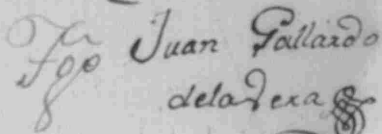 Tgo Juan Gallardo
delaVera